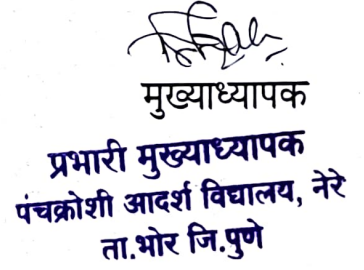 मुख्याध्यापक
प्रभारी मुख्याध्यापक
पंचक्रोशी आदर्श विद्यालय, नेरे
ता.भोर जि.पुणे